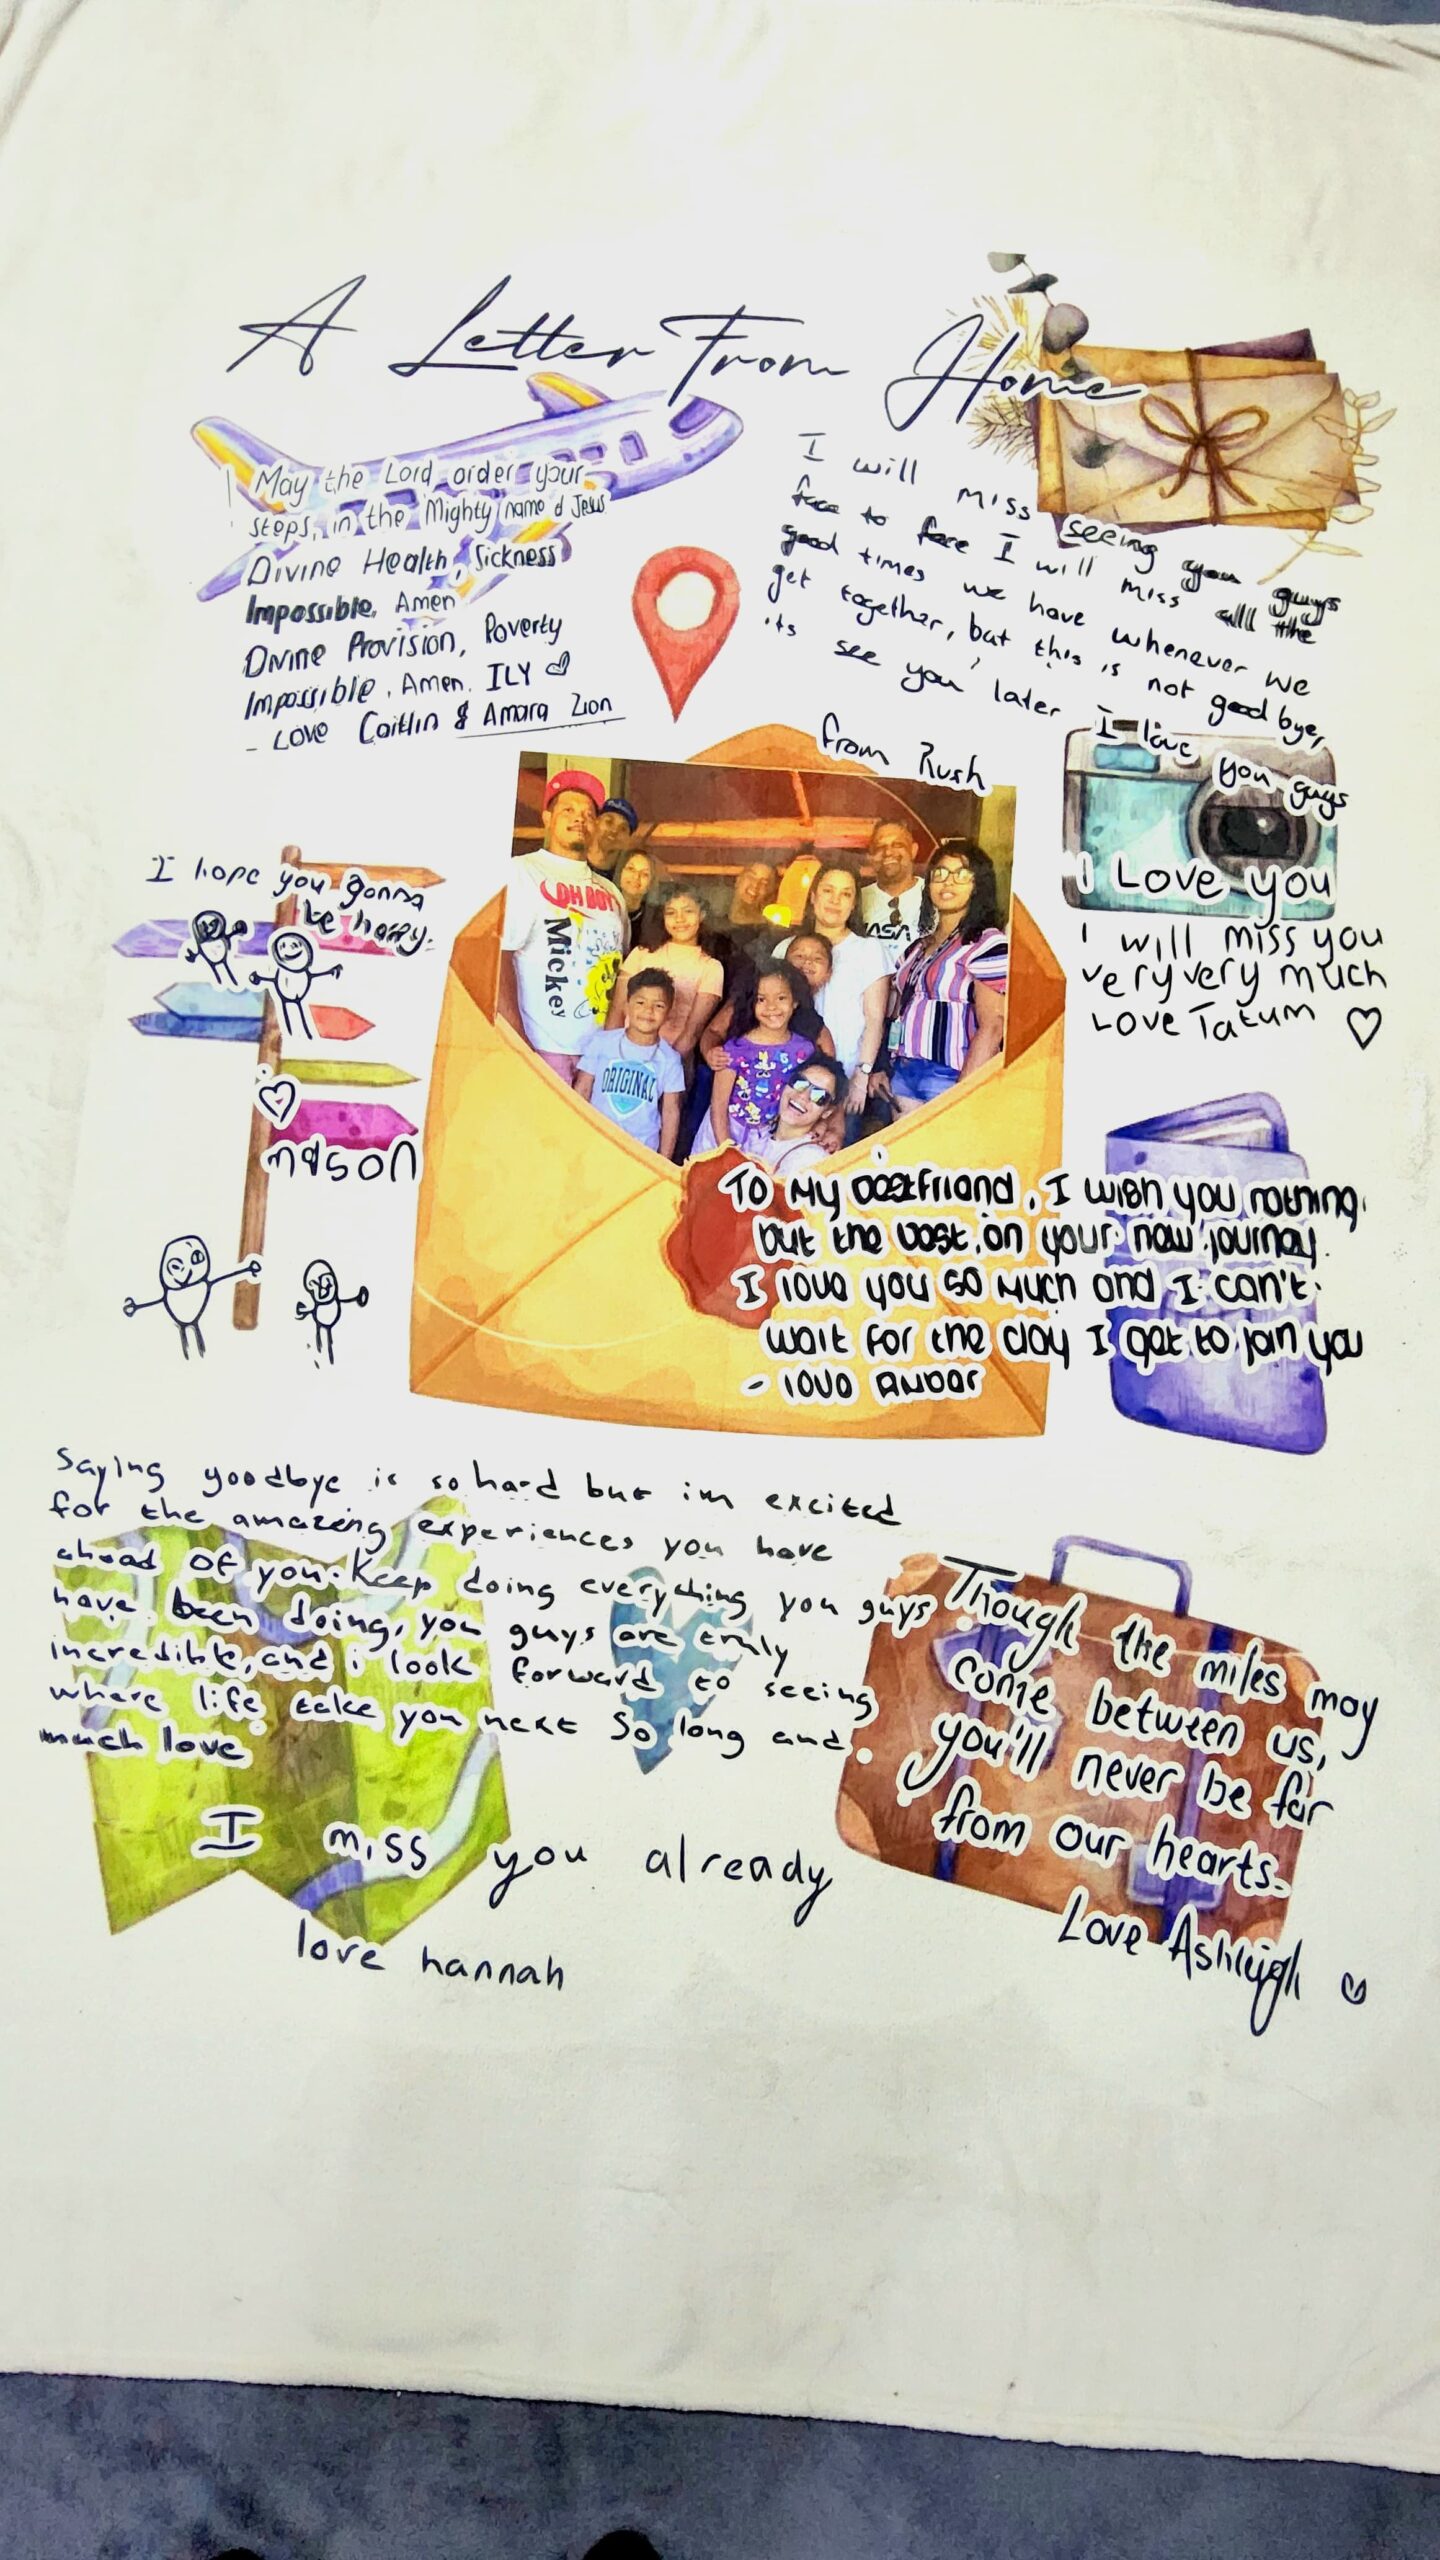 A Letter From Home
May the Lord order your
steps, in the Mighty name of Jesus
Divine Health, Sickness
Impossible, Amen
Divine Provision, Poverty
Impossible, Amen. ILY
- Love Caitlin & Amara Zion
I will miss seeing you guys
face to face I will miss all the
good times we have whenever we
get together, but this is not good bye,
its see you later I love you guys
from Rush
I hope you gonna
be happy.
mason
OH BOY
Mickey
ORIGINAL
I Love you
I will miss you
very very much
Love Tatum
To my bestfriend, I wish you nothing
but the best on your new journey.
I love you so much and I can't
wait for the day I get to join you
- love Amber
Saying goodbye is so hard but im excited
for the amazing experiences you have
ahead of you. Keep doing everything you guys
have been doing, you guys are truly
incredible, and i look forward to seeing
where life take you next So long and
much love
I miss you already
love hannah
Though the miles may
come between us,
you'll never be far
from our hearts.
Love Ashleigh